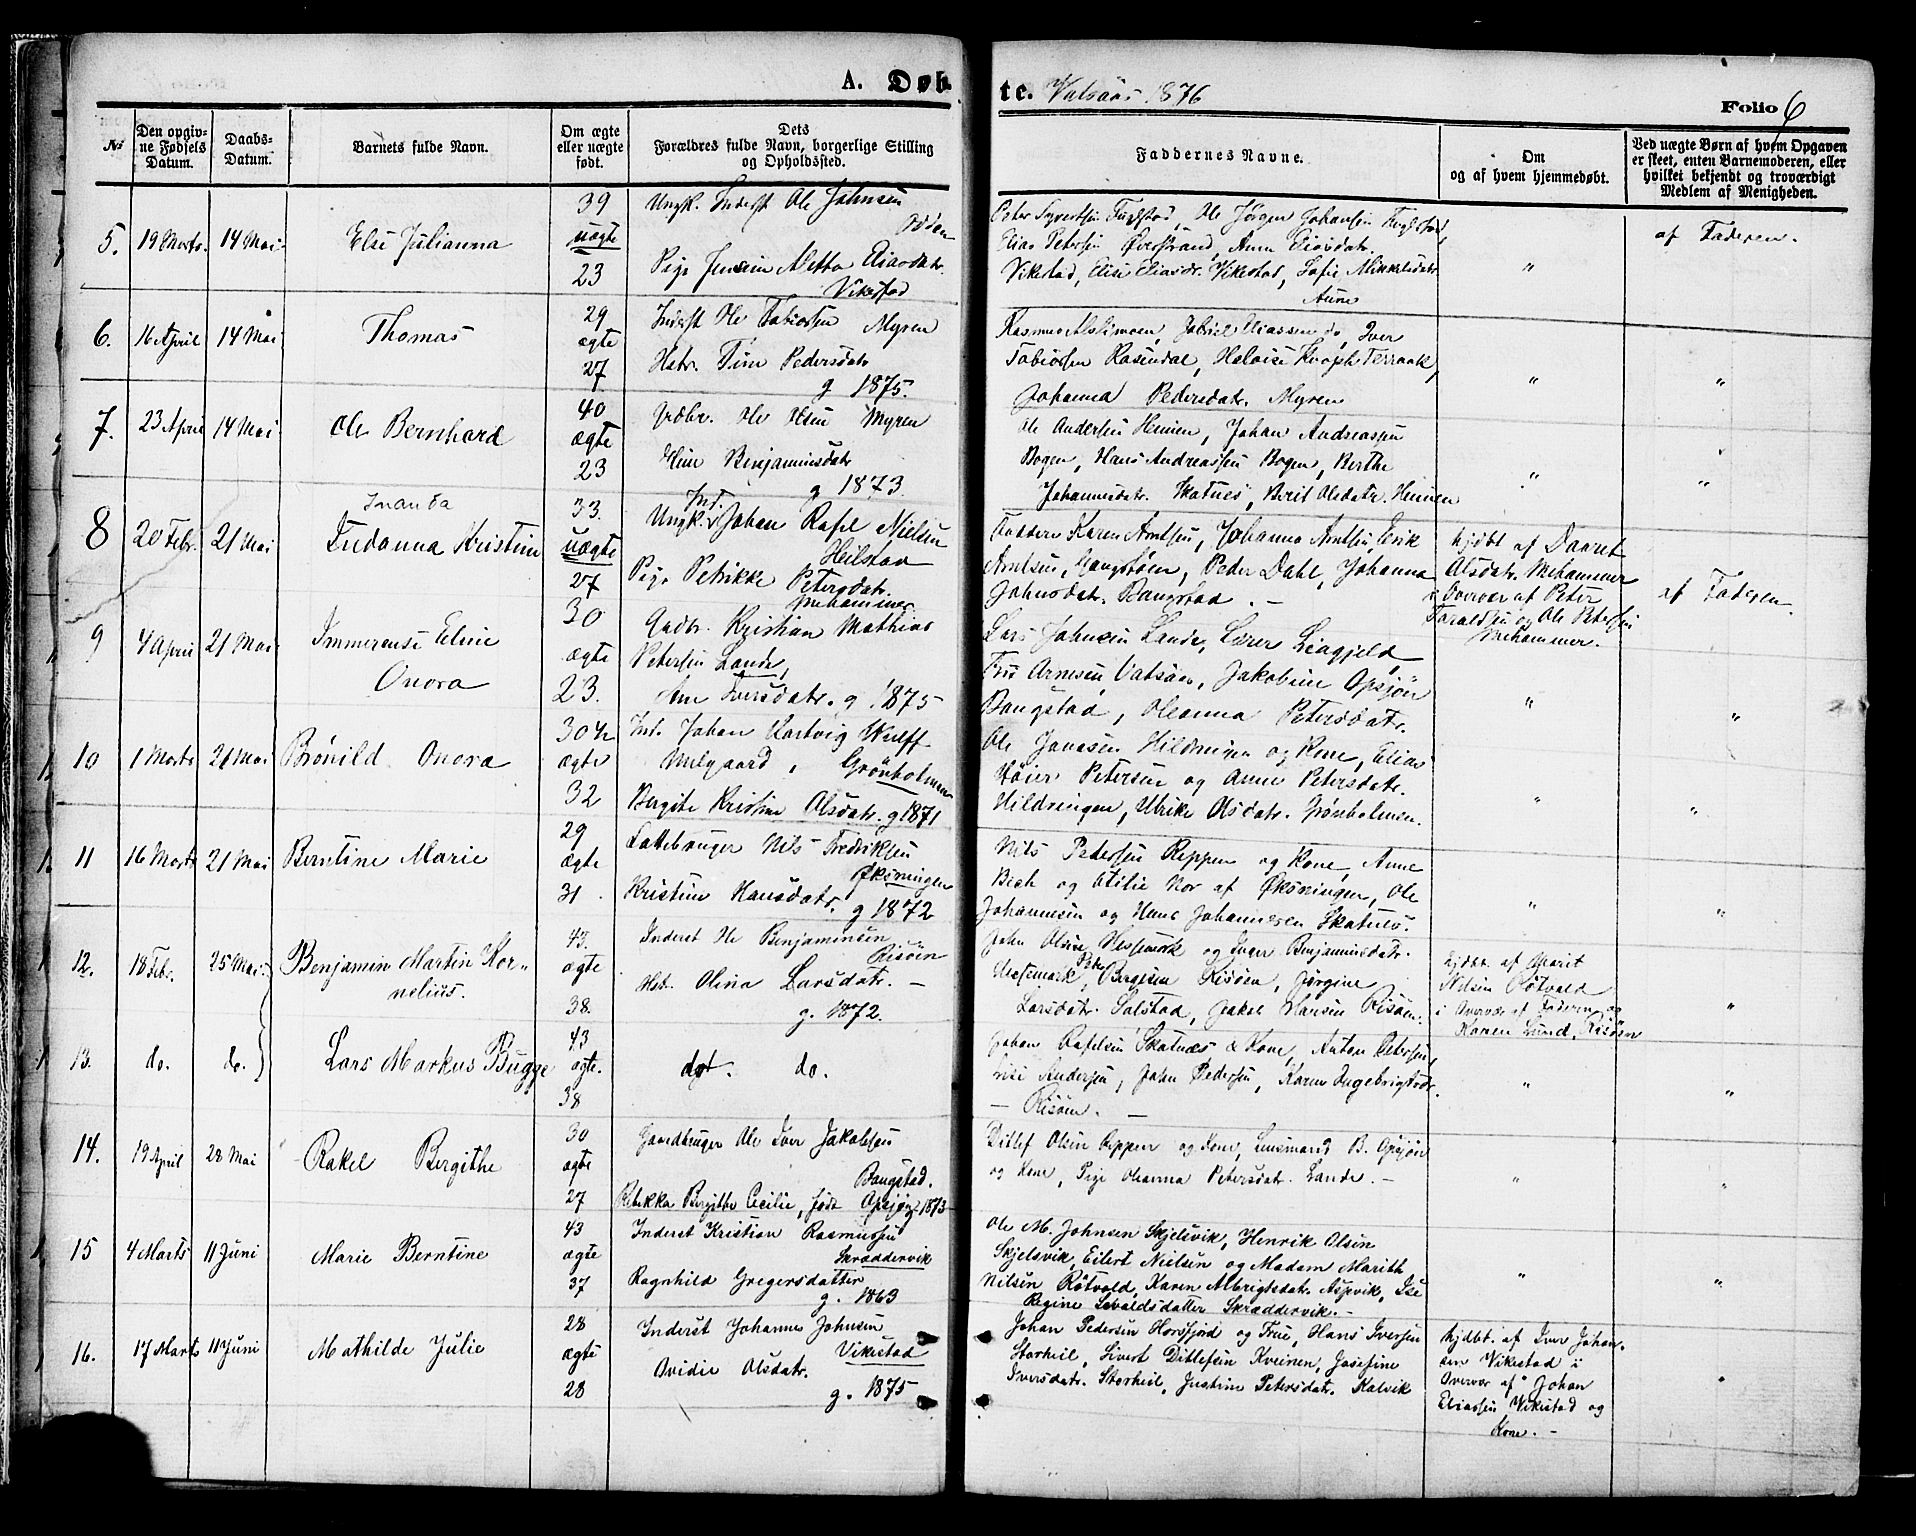 A. Døb
te. Vatsaas 1876
Folio 6
№
Den opgivne Fødsels Datum.
Daabs-Datum.
Barnets fulde Navn.
Om ægte eller uægte født.
Dets Forældres fulde Navn, borgerlige Stilling og Opholdssted.
Faddernes Navne.
Om og af hvem hjemmedøbt.
Ved uægte Børn af hvem Opgaven er skeet, enten Barnemoderen, eller hvilket bekjendt og troværdigt Medlem af Menigheden.
5. 19 Marts 14 Mai Else Julianna
39 uægte 23
Ungk. Inderst Ole Johnsen
Odden
Pige Jensein Aletta Eliasdatr.
Vikestad
Peter Syvertsen Fuglstad, Ole Jørgen Johansen Fuglstad,
Elias Petersen Øverstrand, Anna Eliasdatr.
Vikestad, Elise Eliasdr. Vikestad, Sofie Mikkelsdatr.
Aune
"
af Faderen.
6. 16 April 14 Mai Thomas
29 ægte 27
Inderst Ole Tobiassen Myren
Hstr. Pedersdatr
g 1875.
Gabriel Eliassen do, Iver
Tobiassen Rosendal, Heloise Knoph Terraak,
Johanna Pedersdatr. Myren
"
"
7. 23 April 14 Mai Ole Bernhard
40 ægte 23
Grdbr. Ole Olsen Myren
Benjaminsdatr
g 1873.
Ole Andersen Heimen, Johan Andreassen
Bogen, Hans Andreassen Bogen, Berthe
Johannesdatr. Skotnes, Berit Olsdatr. Heimen
"
"
8 20 Febr. 21 Mai
Inanda
Indanna Kristine
33. uægte 27
Ungk. Ind. Johan Rafael Nielsen
Heilstad
Pige Petrikke Petersdatr.
Mehammer.
Faddere Karen Arntsen, Johanna Arntsen, Erik
Arntsen, Gangstøen, Peder Dahl, Johanna
Johnsdatr. Bangstad. -
hjdbt af Daaret
Olsdatr. Mehammer
i Overvær af Peter
Faraldsen og Ole Petersen
Mehammer.
af Faderen.
9 4 April 21 Mai Immerense Eline
Onora
30 ægte 23.
Gadbr. Kristian Mathias
Petersen Lande,
Ane Iversdatr. g. 1875
Lars Johnsen Lande, Lærer Liagjeld,
Fru Arnesen Vatsaas, Jakobine Opsjøn
Bangstad, Oleanna Petersdatr.
"
"
10 1 Marts 21 Mai Brønild Onora
30 ægte 32
Ind. Johan Hartvig Wulff
Melgaard, Grønholmen
Bergite Kristine Olsdatr. g 1871
Ole Jonasen Hildringen og Kone, Elias
Høier Petersen og Anne Petersdatr.
Hildringen, Ulrike Olsdatr. Grønholmen.
"
"
11 16 Marts 21 Mai Berntine Marie
29 ægte 31
Nils Fredriksen
Øksningen
Kristine Hansdatr. g 1872
Nils Petersen Reppen og Kone, Anne
Bech og Otilie Nor af Øksningen, Ole
Johannesen og Hans Johannesen Skotnes.
"
"
12. 18 Febr. 25 Mai Benjamin Martin Kor-
nelius.
43. ægte 38.
Inderst Ole Benjaminsen
Risøen
Hst. Olina Larsdatr. -
g. 1872.
John Olsen Hestmark og Inger Benjaminsdatr.
Hestemark, Peter Bergesen Risøen, Jørgine
Larsdatr. Salstad, Jakob Hansen Risøen.
hjdbt. af Marit
Nilsen Røtvold
i Overvær af Faderen og
Karen Lund, Risøen
"
13. do. do. Lars Markus Bugge
43 ægte. 38
dgt. do.
Johan Rafelsen Skotnæs & Kone, Anton Petersen,
Andersen, John Pedersen, Karen Ingebrigtsdr.
- Risøen. -
"
"
14. 19 April 28 Mai Rakel Bergithe
30 ægte 27
Gaardbruger Ole Iver Jakobsen
Bangstad.
Rebekka Bergitte Cecilie, født Opsjøn g. 1873
Ditlef Olsen Reppen og Kone, Lensmand B. Opsjøn
og Kone, Pige Oleanna Petersdatr. Lande. -
"
"
15 4 Marts 11 Juni Marie Berntine
43 ægte 37
Inderst Kristian Rasmussen
Skræddervik
Ragnhild Gregersdatter
g. 1863
Ole M. Johnsen Skjelsvik, Henrik Olsen
Skjelsvik, Eilert Nielsen og Madam Marith
Nilsen Røtvold, Karen Albrigtsdatr. Aspvik, Ise
Regine Sevaldsdatter Skræddervik. -
"
"
16. 17 Marts 11 Juni Mathilde Julie
28 ægte 28
Inderst Johannes Johnsen
Vikestad
Ovidie Olsdatr.
g. 1875
Johan Pedersen Horsfjord og Frue, Hans Iversen
Storheil, Sivert Ditlefsen Kveinen, Josefine
Iversdatr. Storheil, Justine Petersdatr. Kalvik
hjdbt. af Iver Johan-
sen Vikestad i
Overvær af Johan
Eliassen Vikestad og
Kone. -
"